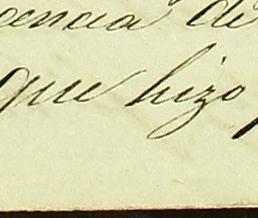 encia de
que hizo